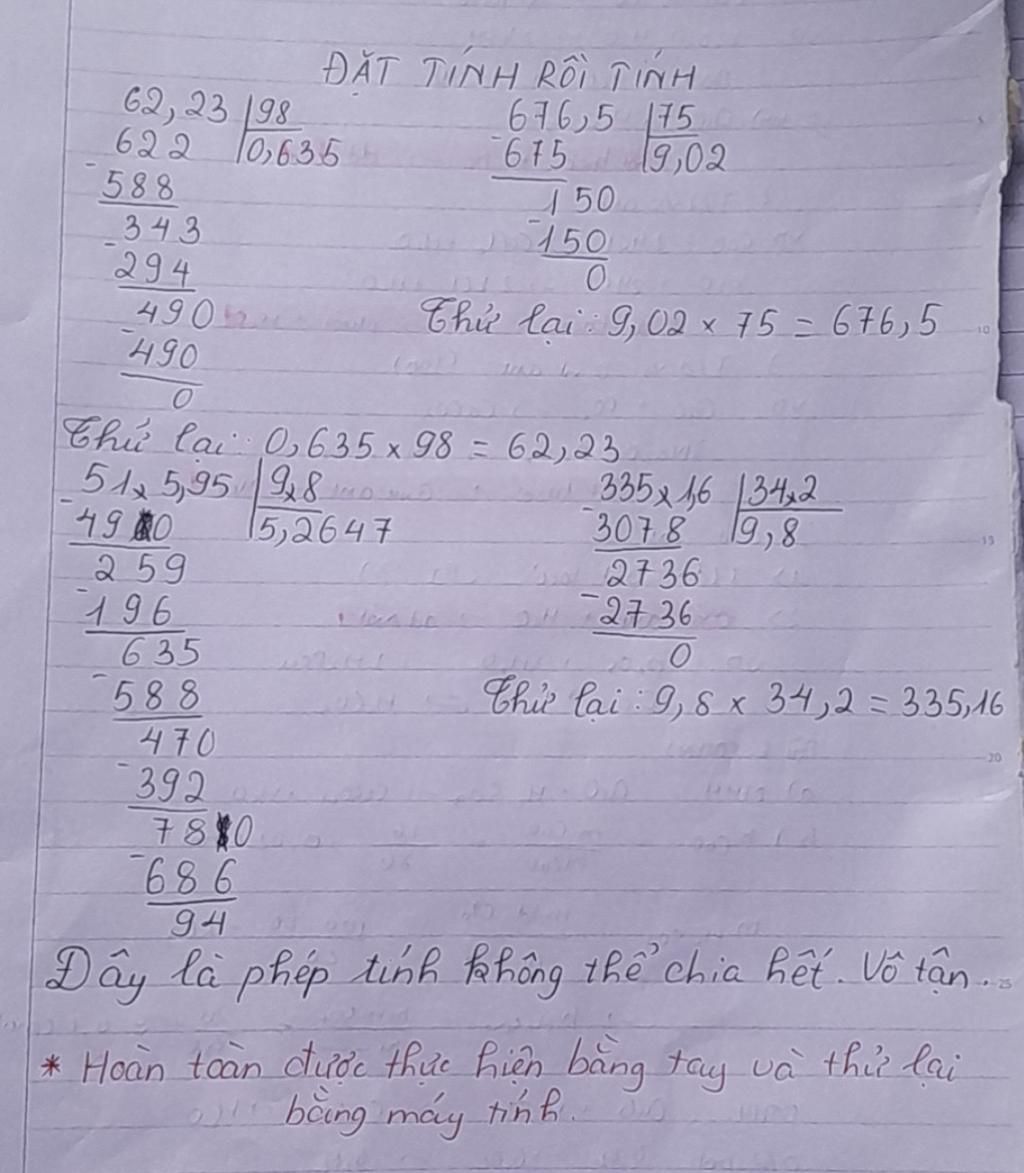 ĐẶT TÍNH RỒI TÍNH
62,23 | 98
622 | 0,635
- 588
343
- 294
490
- 490
0
676,5 | 75
- 675 | 9,02
150
- 150
0
Thử lại: 9,02 × 75 = 676,5
Thử lại: 0,635 × 98 = 62,23
51x5,95 | 9x8
- 490 | 5,2647
259
- 196
635
- 588
470
- 392
780
- 686
94
335x1,6 | 34x2
- 3078 | 9,8
2736
- 2736
0
Thử lại: 9,8 × 34,2 = 335,16
Đây là phép tính không thể chia hết. Vô tận.
* Hoàn toàn được thực hiện bằng tay và thử lại
bằng máy tính.